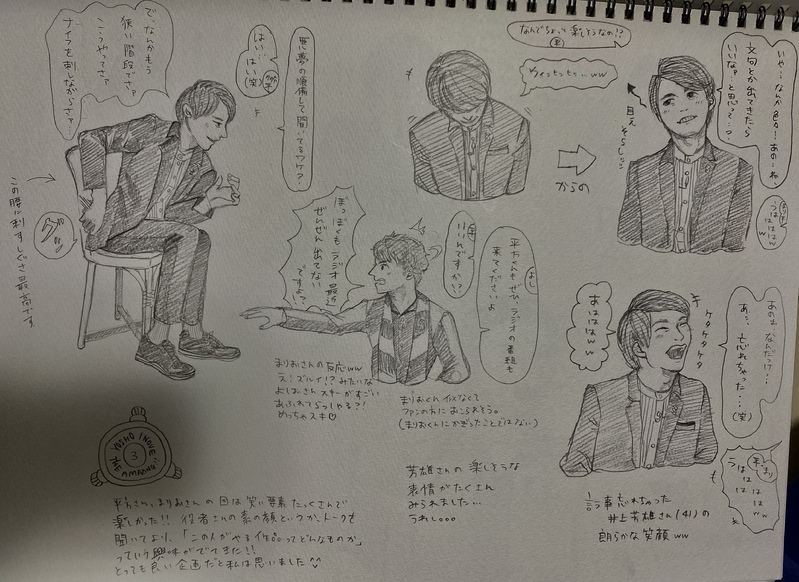 で なんかもう
狭い階段でさァ
こうやってさァ
ナイフを刺しながらさァ
はい…
はい(笑)
悪夢の順備して聞いてるワケ?
この腰に刺すしぐさ最高です
グッ
なんでちょっと楽しそうなの!?
ウィっちっちっ…ww
いや…なんか色々…あの…ね、
文句とか出てきたら
いいなァ…と思って…?
目をそらしっ
からの
うはははは
w
ぼっぼくもラジオ最近
ぜんぜん出てない
ですよ?
いいんですか!?
よし
平ちゃんもぜひラジオの番組も
来てくださいよ
まりおさんの反応ww
え!ズルイ!?みたいな
よしおさんスキーがすごい
あふれてらっしゃる?!
めっちゃスキ♡
まりおくん似てなくて
ファンの方におこられそう。
(まりおくんにかぎったことではない)
あははは
ww
ケタケタケタ
あのね なんだっけ?…
あぁ、忘れちゃった…(笑)
うはははは
ww
YOSHIO INOUE
3
芳雄さんの楽しそうな
表情がたくさん
みられました…
うれし。。。
言う事忘れちゃった
井上芳雄さん(41)の
朗らかな笑顔ww
平方さん、まりおさんの回は笑い要素たっくさんで
楽しかった!! 役者さんの素の顔というか、トークも
聞いてより、「この人がやる作品ってどんなものか」
っていう興味がでてきた!!
とっても良い企画だと私は思いました